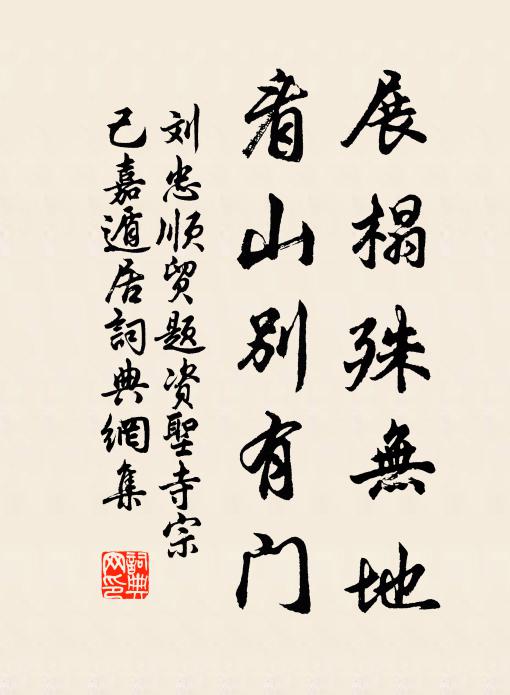 展榻殊無地
看山別有門
刘忠顺贸题资聖寺宗
己嘉遁居詞典網集
詞典网印